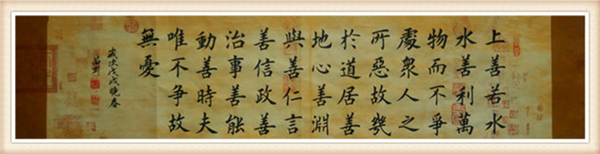 上善若水
水善利萬
物而不爭
處衆人之
所惡故幾
於道居善
地心善淵
與善仁言
善信政善
治事善能
動善時夫
唯不争故
無憂
歲次戊戌晚春